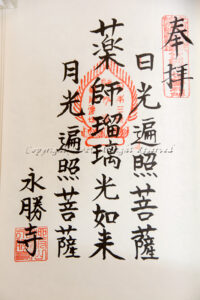 奉拝
日光遍照菩薩
薬師瑠璃光如来
月光遍照菩薩
永勝寺